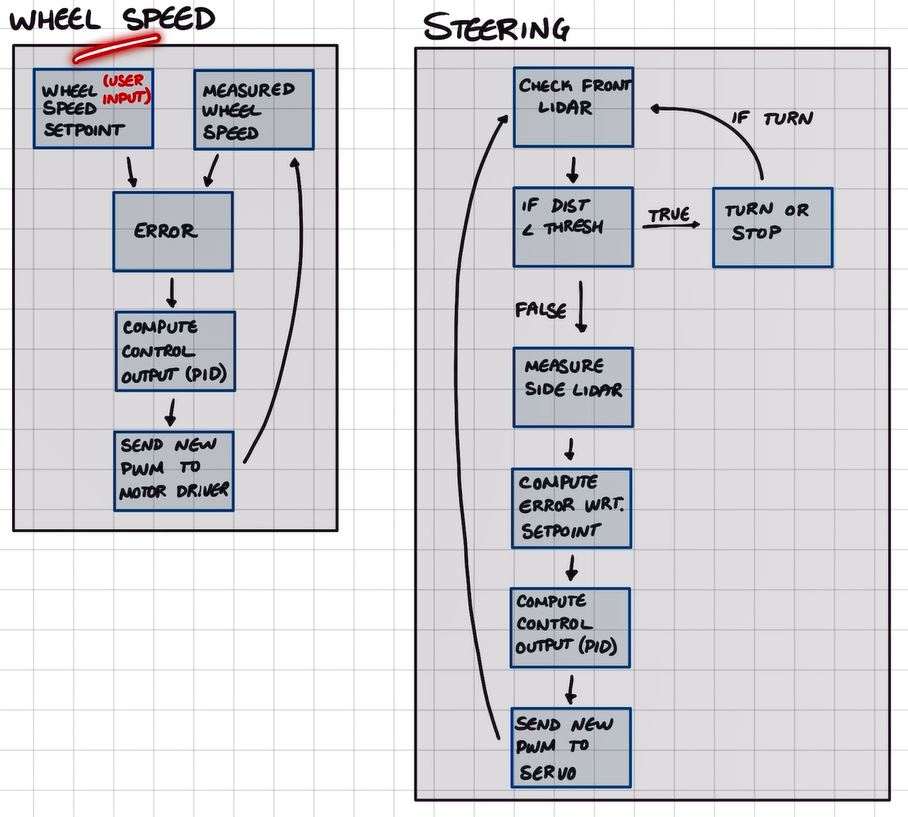 WHEEL SPEED
WHEEL (USER
SPEED INPUT)
SETPOINT
MEASURED
WHEEL
SPEED
ERROR
COMPUTE
CONTROL
OUTPUT (PID)
SEND NEW
PWM TO
MOTOR DRIVER
STEERING
CHECK FRONT
LIDAR
IF TURN
IF DIST
< THRESH
TRUE
TURN OR
STOP
FALSE
MEASURE
SIDE LIDAR
COMPUTE
ERROR WRT.
SETPOINT
COMPUTE
CONTROL
OUTPUT (PID)
SEND NEW
PWM TO
SERVO